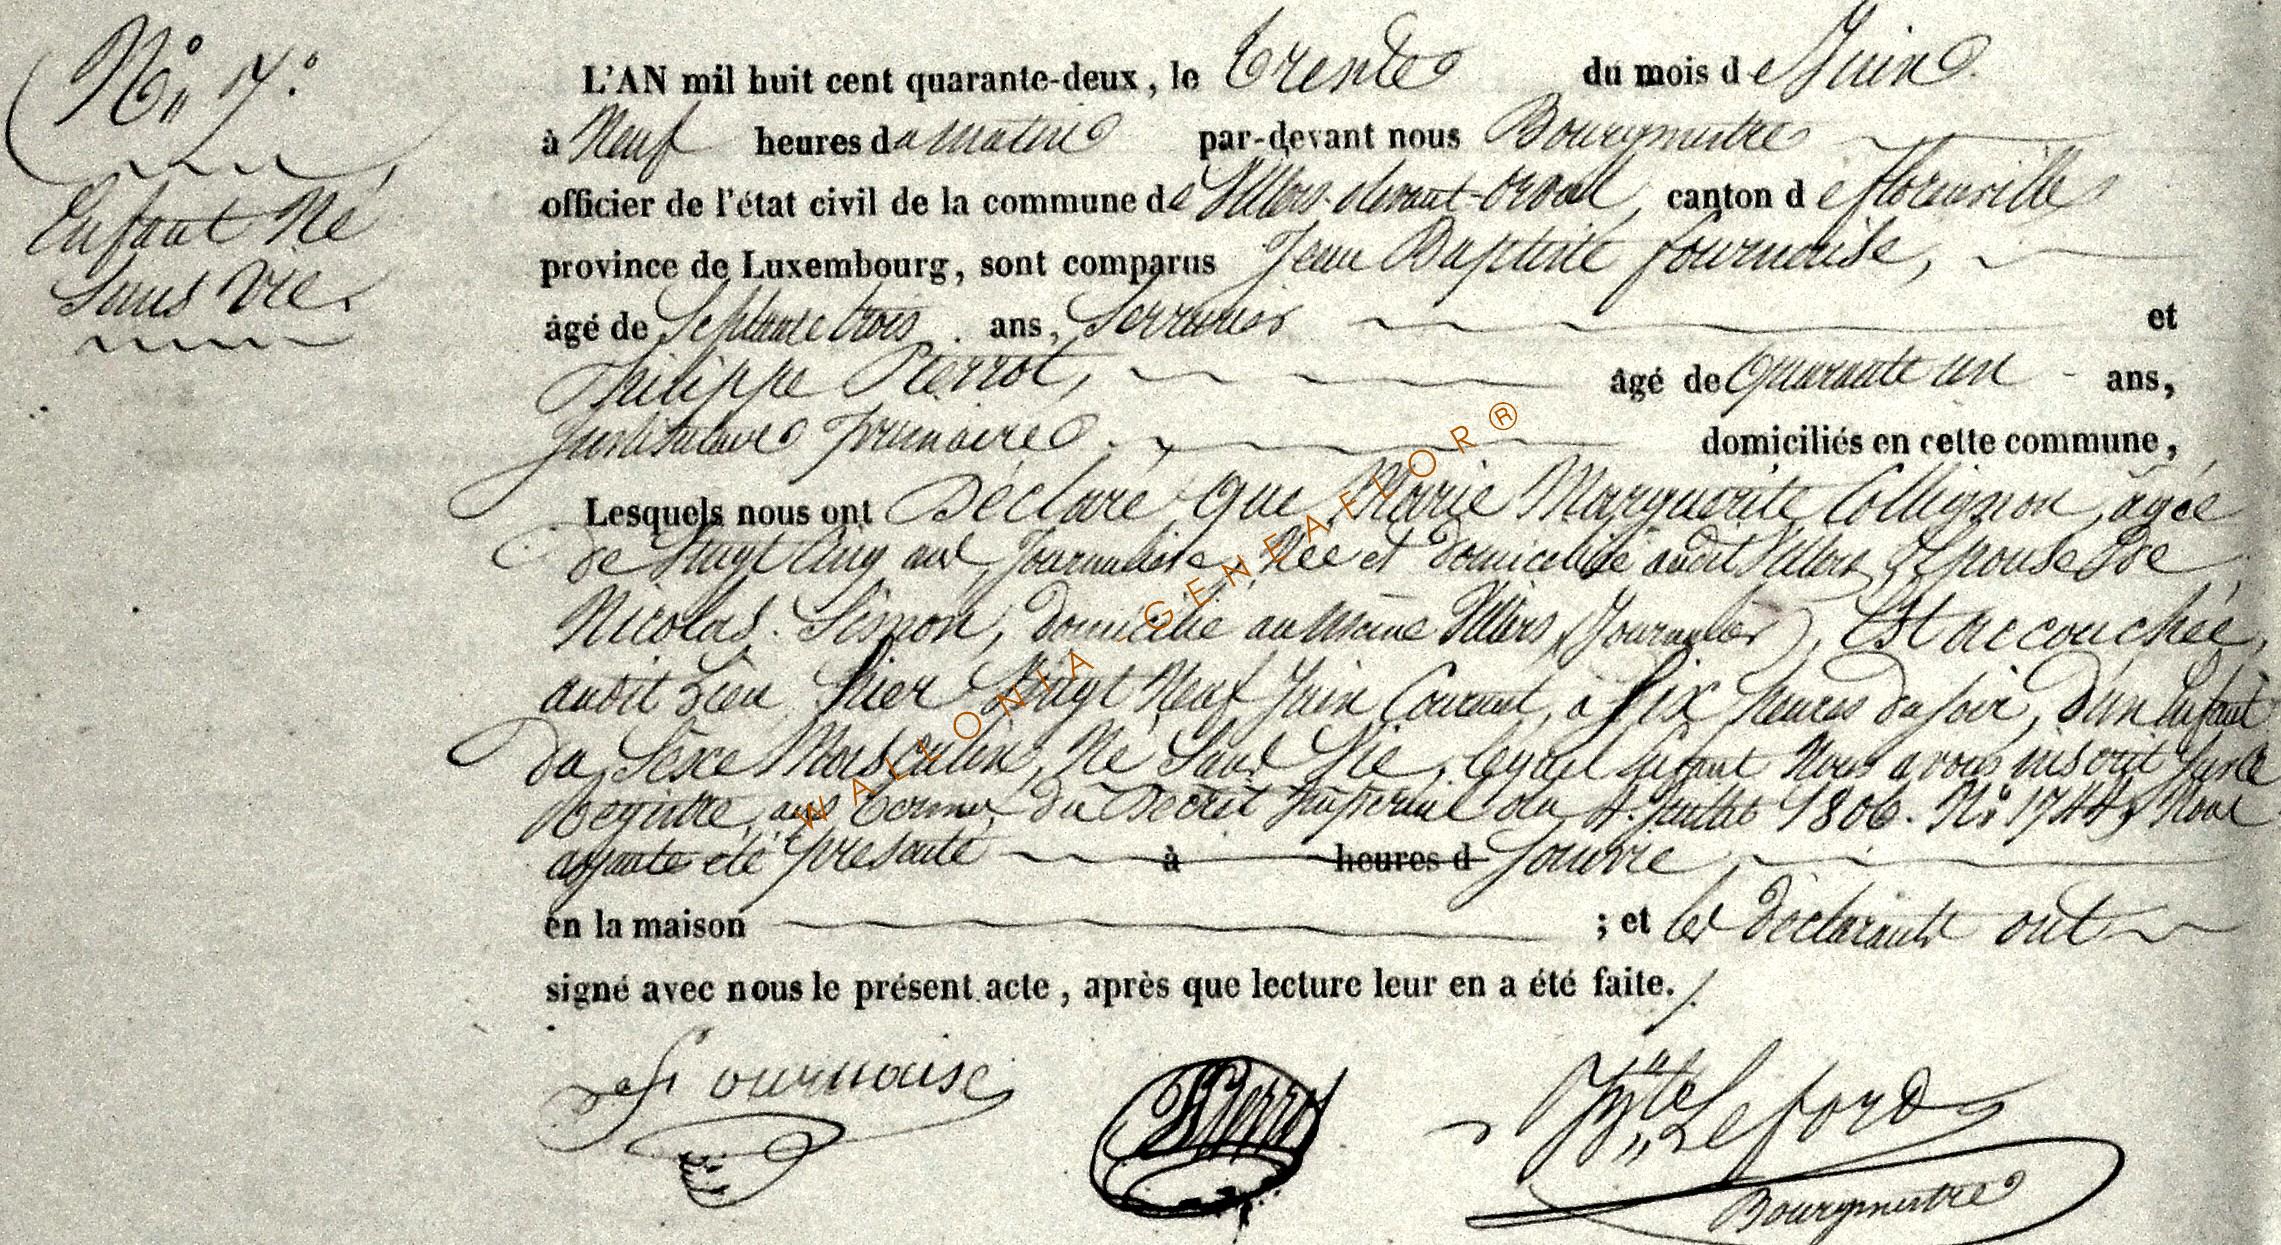 N° 7.
Enfant Né
Sans Vie.
L'AN mil huit cent quarante-deux, le Trente du mois de Juin.
à Neuf heures du matin par-devant nous Bourgmestre
officier de l'état civil de la commune de Villers-devant-orval, canton de florenville
province de Luxembourg, sont comparus Jean Baptiste fournaise,
âgé de Septante trois ans, Serrurier et
Philippe Pierrot, âgé de Quarante un ans,
Instituteur primaire. domiciliés en cette commune,
Lesquels nous ont Déclaré que Marie Marguerite Collignon, âgée
de Vingt Cinq ans, Journalière, Née et domiciliée audit Villers, Epouse de
Nicolas Simon, domicilié au Même Villers, (Journalier), Est accouchée,
audit Lieu hier Vingt Neuf Juin Courant, à Six heures du soir, d'un Enfant
du Sexe Masculin, Né Sans Vie, lequel Enfant Nous avons inscrit sur le
Registre, aux termes du Décret Impérial du 4 Juillet 1806. N° 1744, Nous
ayante été présenté à heures d
en la maison ; et les déclarants ont
signé avec nous le présent acte, après que lecture leur en a été faite./.
Fournaise Pierrot Hyte Leford
Bourgmestre
WALLONIA - GENEAFLOR®